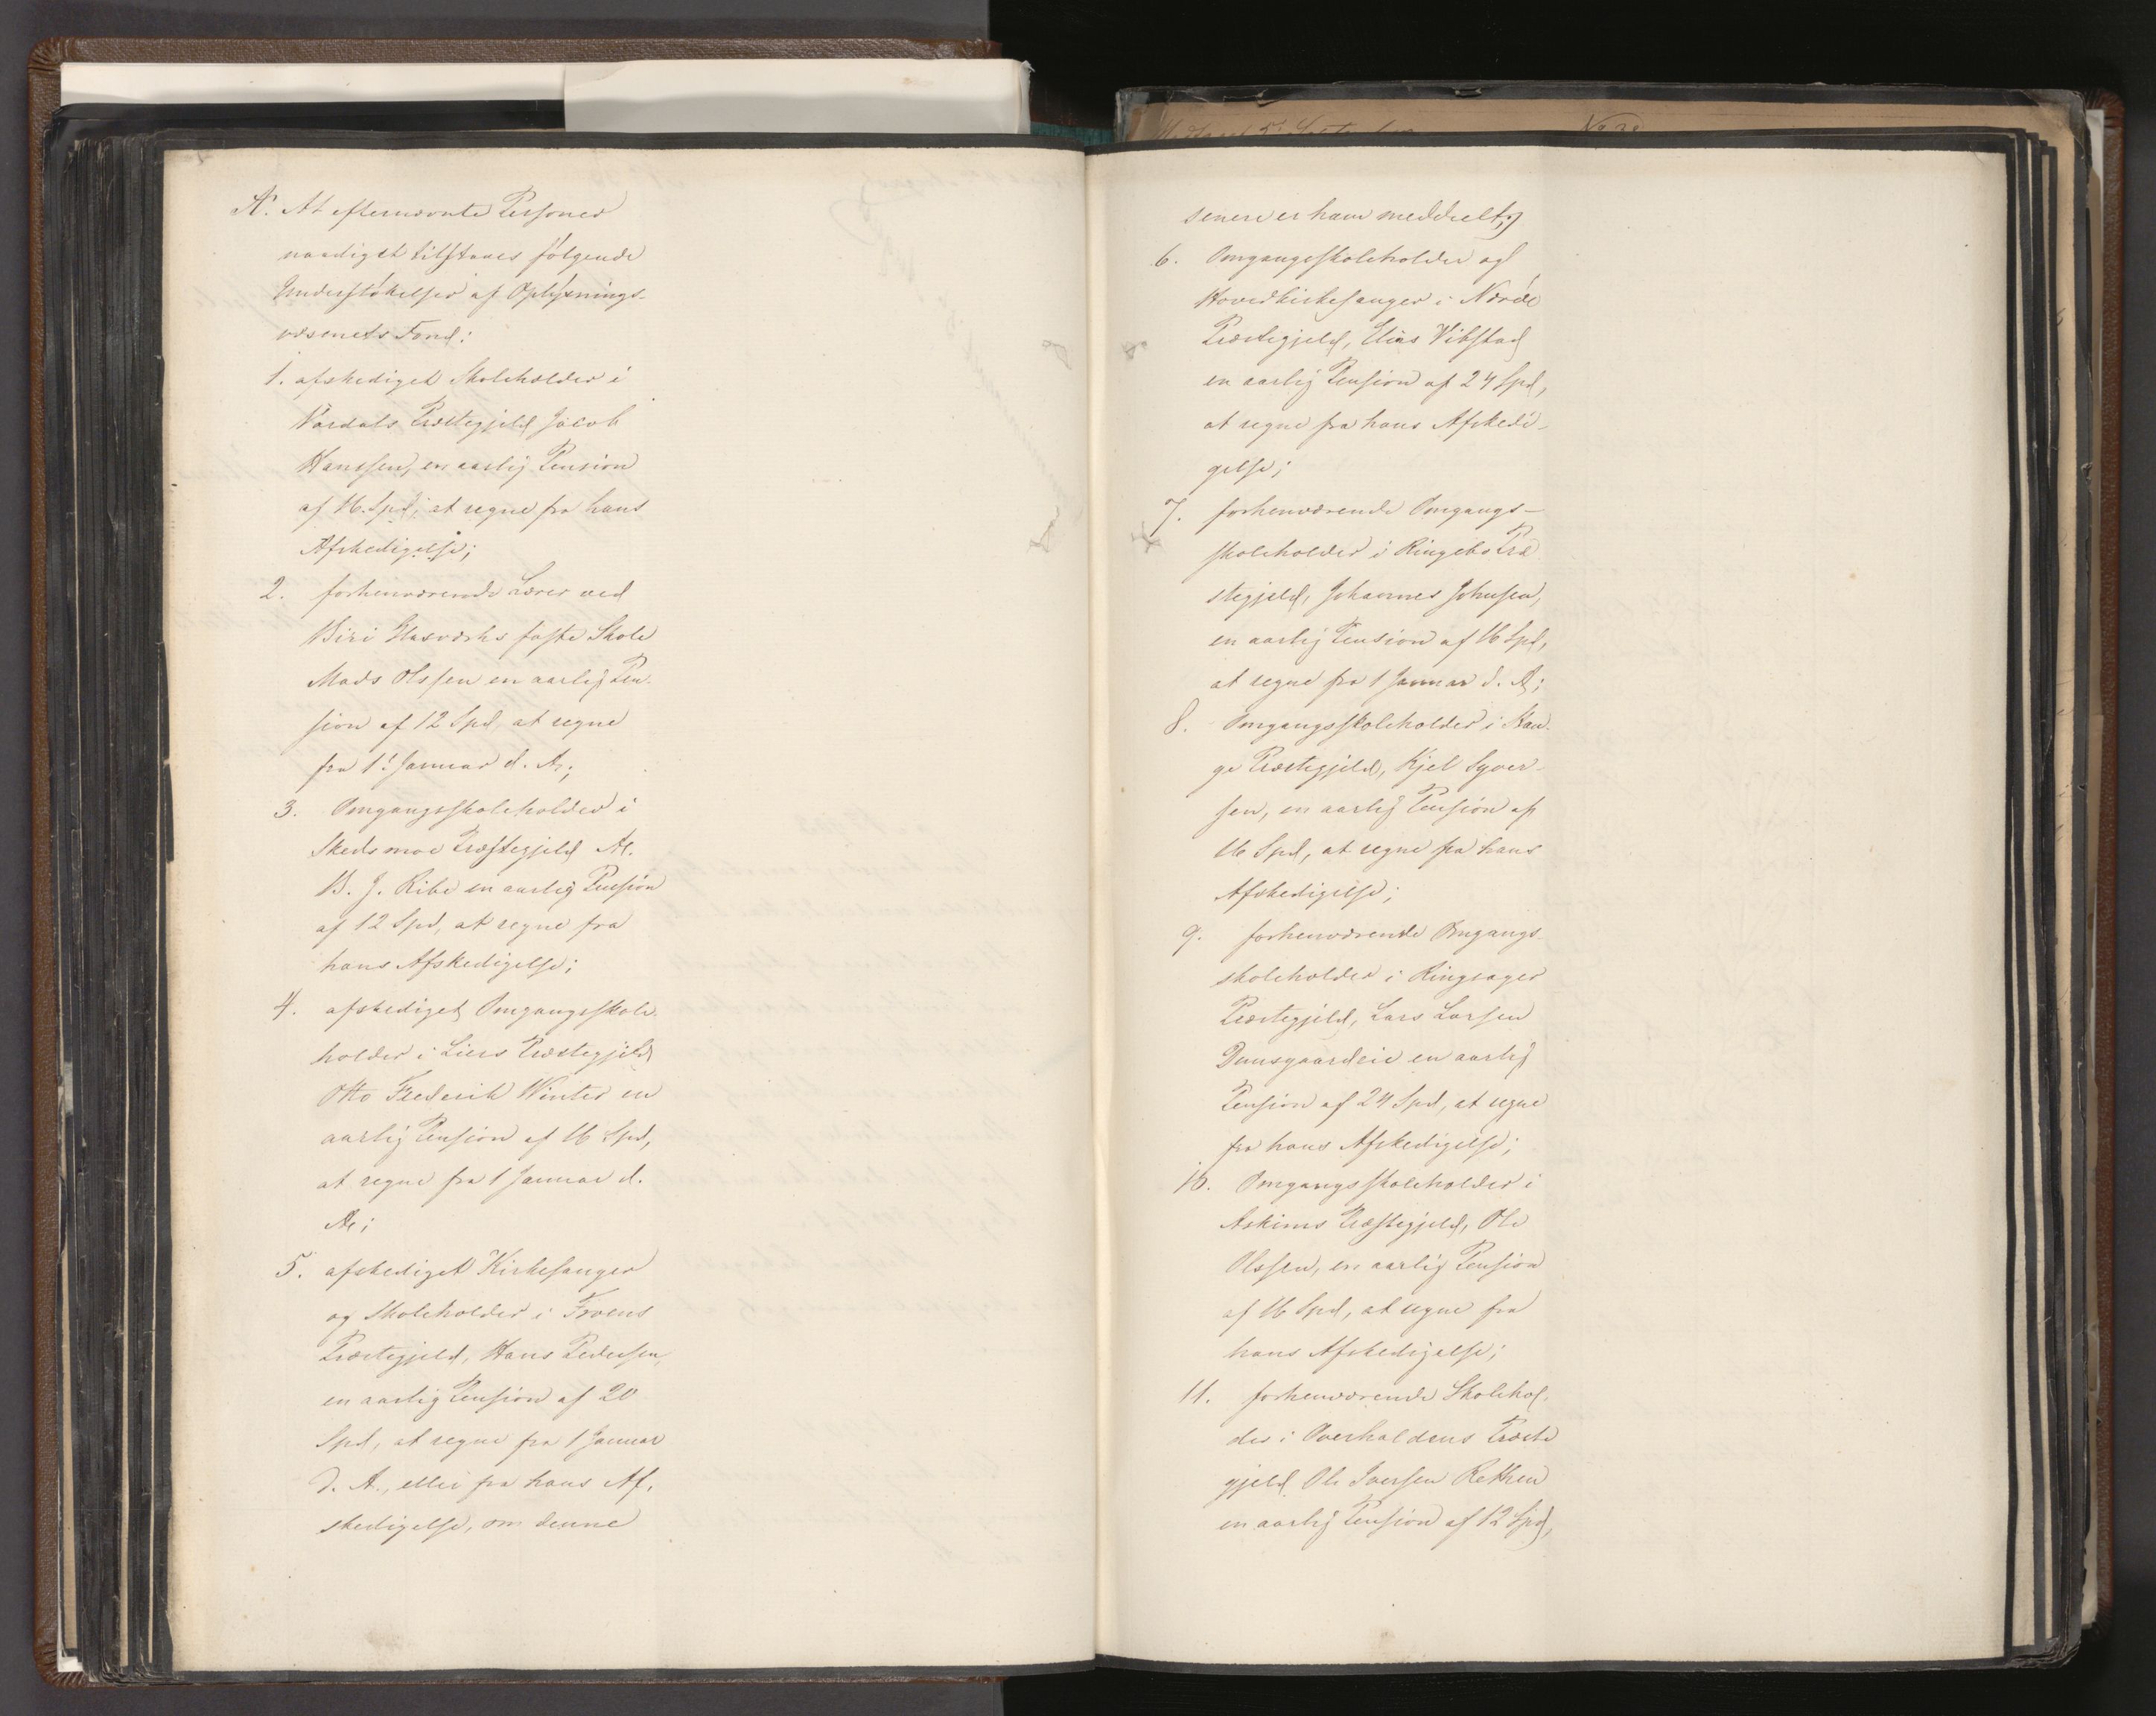 A. At efternævnte Personer
naadigst tilstaaes følgende
Understøttelser af Oplysnings-
væsenets Fond:
1. afskediget Skoleholder i
Vardals Præstegjeld Jacob
Hanssen, en aarlig Pension
af 16 Spd, at regne fra hans
Afskedigelse;
2. forhenværende Lærer ved
Biri Glasværks faste Skole
Mads Olssen en aarlig Pen-
sion af 12 Spd, at regne
fra 1. Januar d. A.;
3. Omgangsskoleholder i
Skedsmoe Præstegjeld A.
B. J. Ribe en aarlig Pension
af 12 Spd, at regne fra
hans Afskedigelse;
4. afskediget Omgangsskole-
holder i Liers Præstegjeld
Otto Frederik Winter en
aarlig Pension af 16 Spd,
at regne fra 1 Januar d.
A;
5. afskediget Kirkesanger
og Skoleholder i Froens
Præstegjeld, Hans Pedersen,
en aarlig Pension af 20
Spd, at regne fra 1 Januar
d. A., eller fra hans Af-
skedigelse, om denne
senere er ham meddeelt;
6. Omgangsskoleholder og
Hovedkirkesanger i Nærøe
Præstegjeld, Elias Vibstad
en aarlig Pension af 24 Spd,
at regne fra hans Afskedi-
gelse;
7. forhenværende Omgangs-
skoleholder i Ringebo Præ
stegjeld, Johannes Johnsen,
en aarlig Pension af 16 Spd,
at regne fra 1 Januar d. A;
8. Omgangsskoleholder i Stan-
ge Præstegjeld, Kjel Syver-
sen, en aarlig Pension af
16 Spd, at regne fra hans
Afskedigelse;
9. forhenværende Omgangs-
skoleholder i Ringsager
Præstegjeld, Lars Larsen
Duusgaardeie en aarlig
Pension af 24 Spd, at regne
fra hans Afskedigelse;
10. Omgangsskoleholder i
Askims Præstegjeld, Ole
Olssen, en aarlig Pension
af 16 Spd, at regne fra
hans Afskedigelse;
11. forhenværende Skolehol-
der i Overhaldens Præste
gjeld Ole Iversen Rethen
en aarlig Pension af 12 Spd,